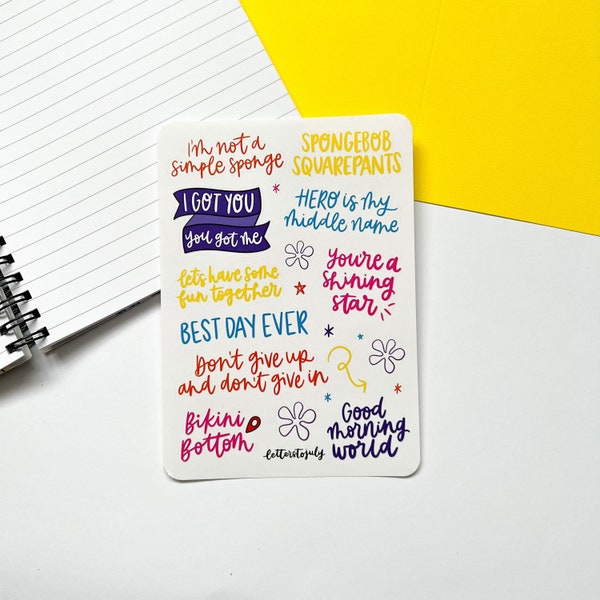 I'm not a
simple sponge
SPONGEBOB
SQUAREPANTS
I GOT YOU
you got me
HERO is my
middle name
let's have some
fun together
You're a
shining
star
BEST DAY EVER
Don't give up
and don't give in
Bikini
Bottom
Good
morning
world
letterstojuly